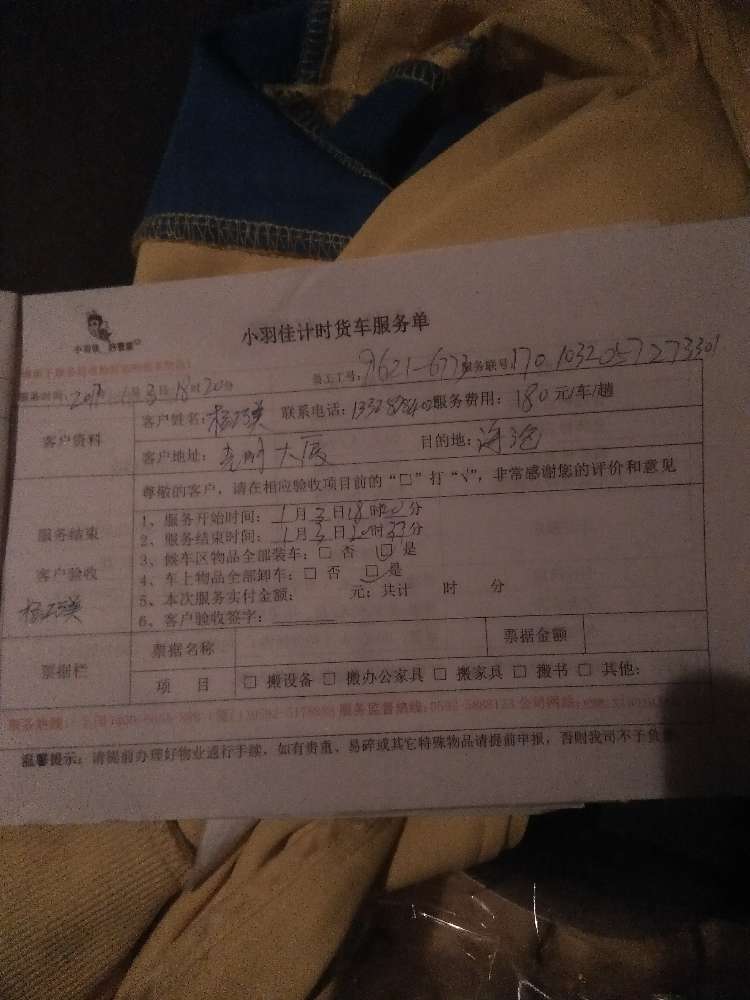 小羽佳 好管家
小羽佳计时货车服务单
服务时间: 2017年1月3日18时20分 员工工号: 9621-6773 服务联号: 1701032057273301
客户资料
客户姓名: 联系电话: 服务费用: 180元/车/趟
客户地址: 大厦 目的地: 海沧
尊敬的客户,请在相应验收项目前的“□”打“√”,非常感谢您的评价和意见
服务结束
客户验收
1、服务开始时间: 1月3日18时 分
2、服务结束时间: 1月3日20时33分
3、候车区物品全部装车: □ 否 □ 是
4、车上物品全部卸车: □ 否 □ 是
5、本次服务实付金额: 元; 共计 时 分
6、客户验收签字:
票据栏
票据名称 票据金额
项 目 □ 搬设备 □ 搬办公家具 □ 搬家具 □ 搬书 □ 其他:
服务监督热线: 0592-5888123 公司网站:
温馨提示: 请提前办理好物业通行手续,如有贵重、易碎或其它特殊物品请提前申报,否则我司不予负责